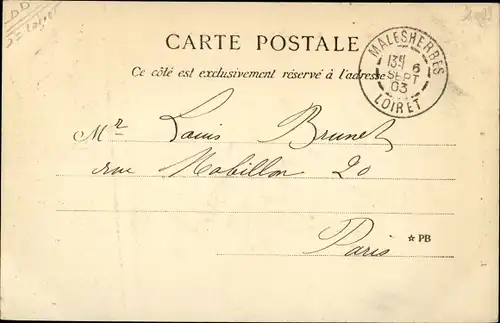 CARTE POSTALE
Ce côté est exclusivement réservé à l'adresse
MALESHERBES
13H 6
SEPT
03
LOIRET
Mr Louis Brunet
rue Mabillon 20
Paris
★ PB